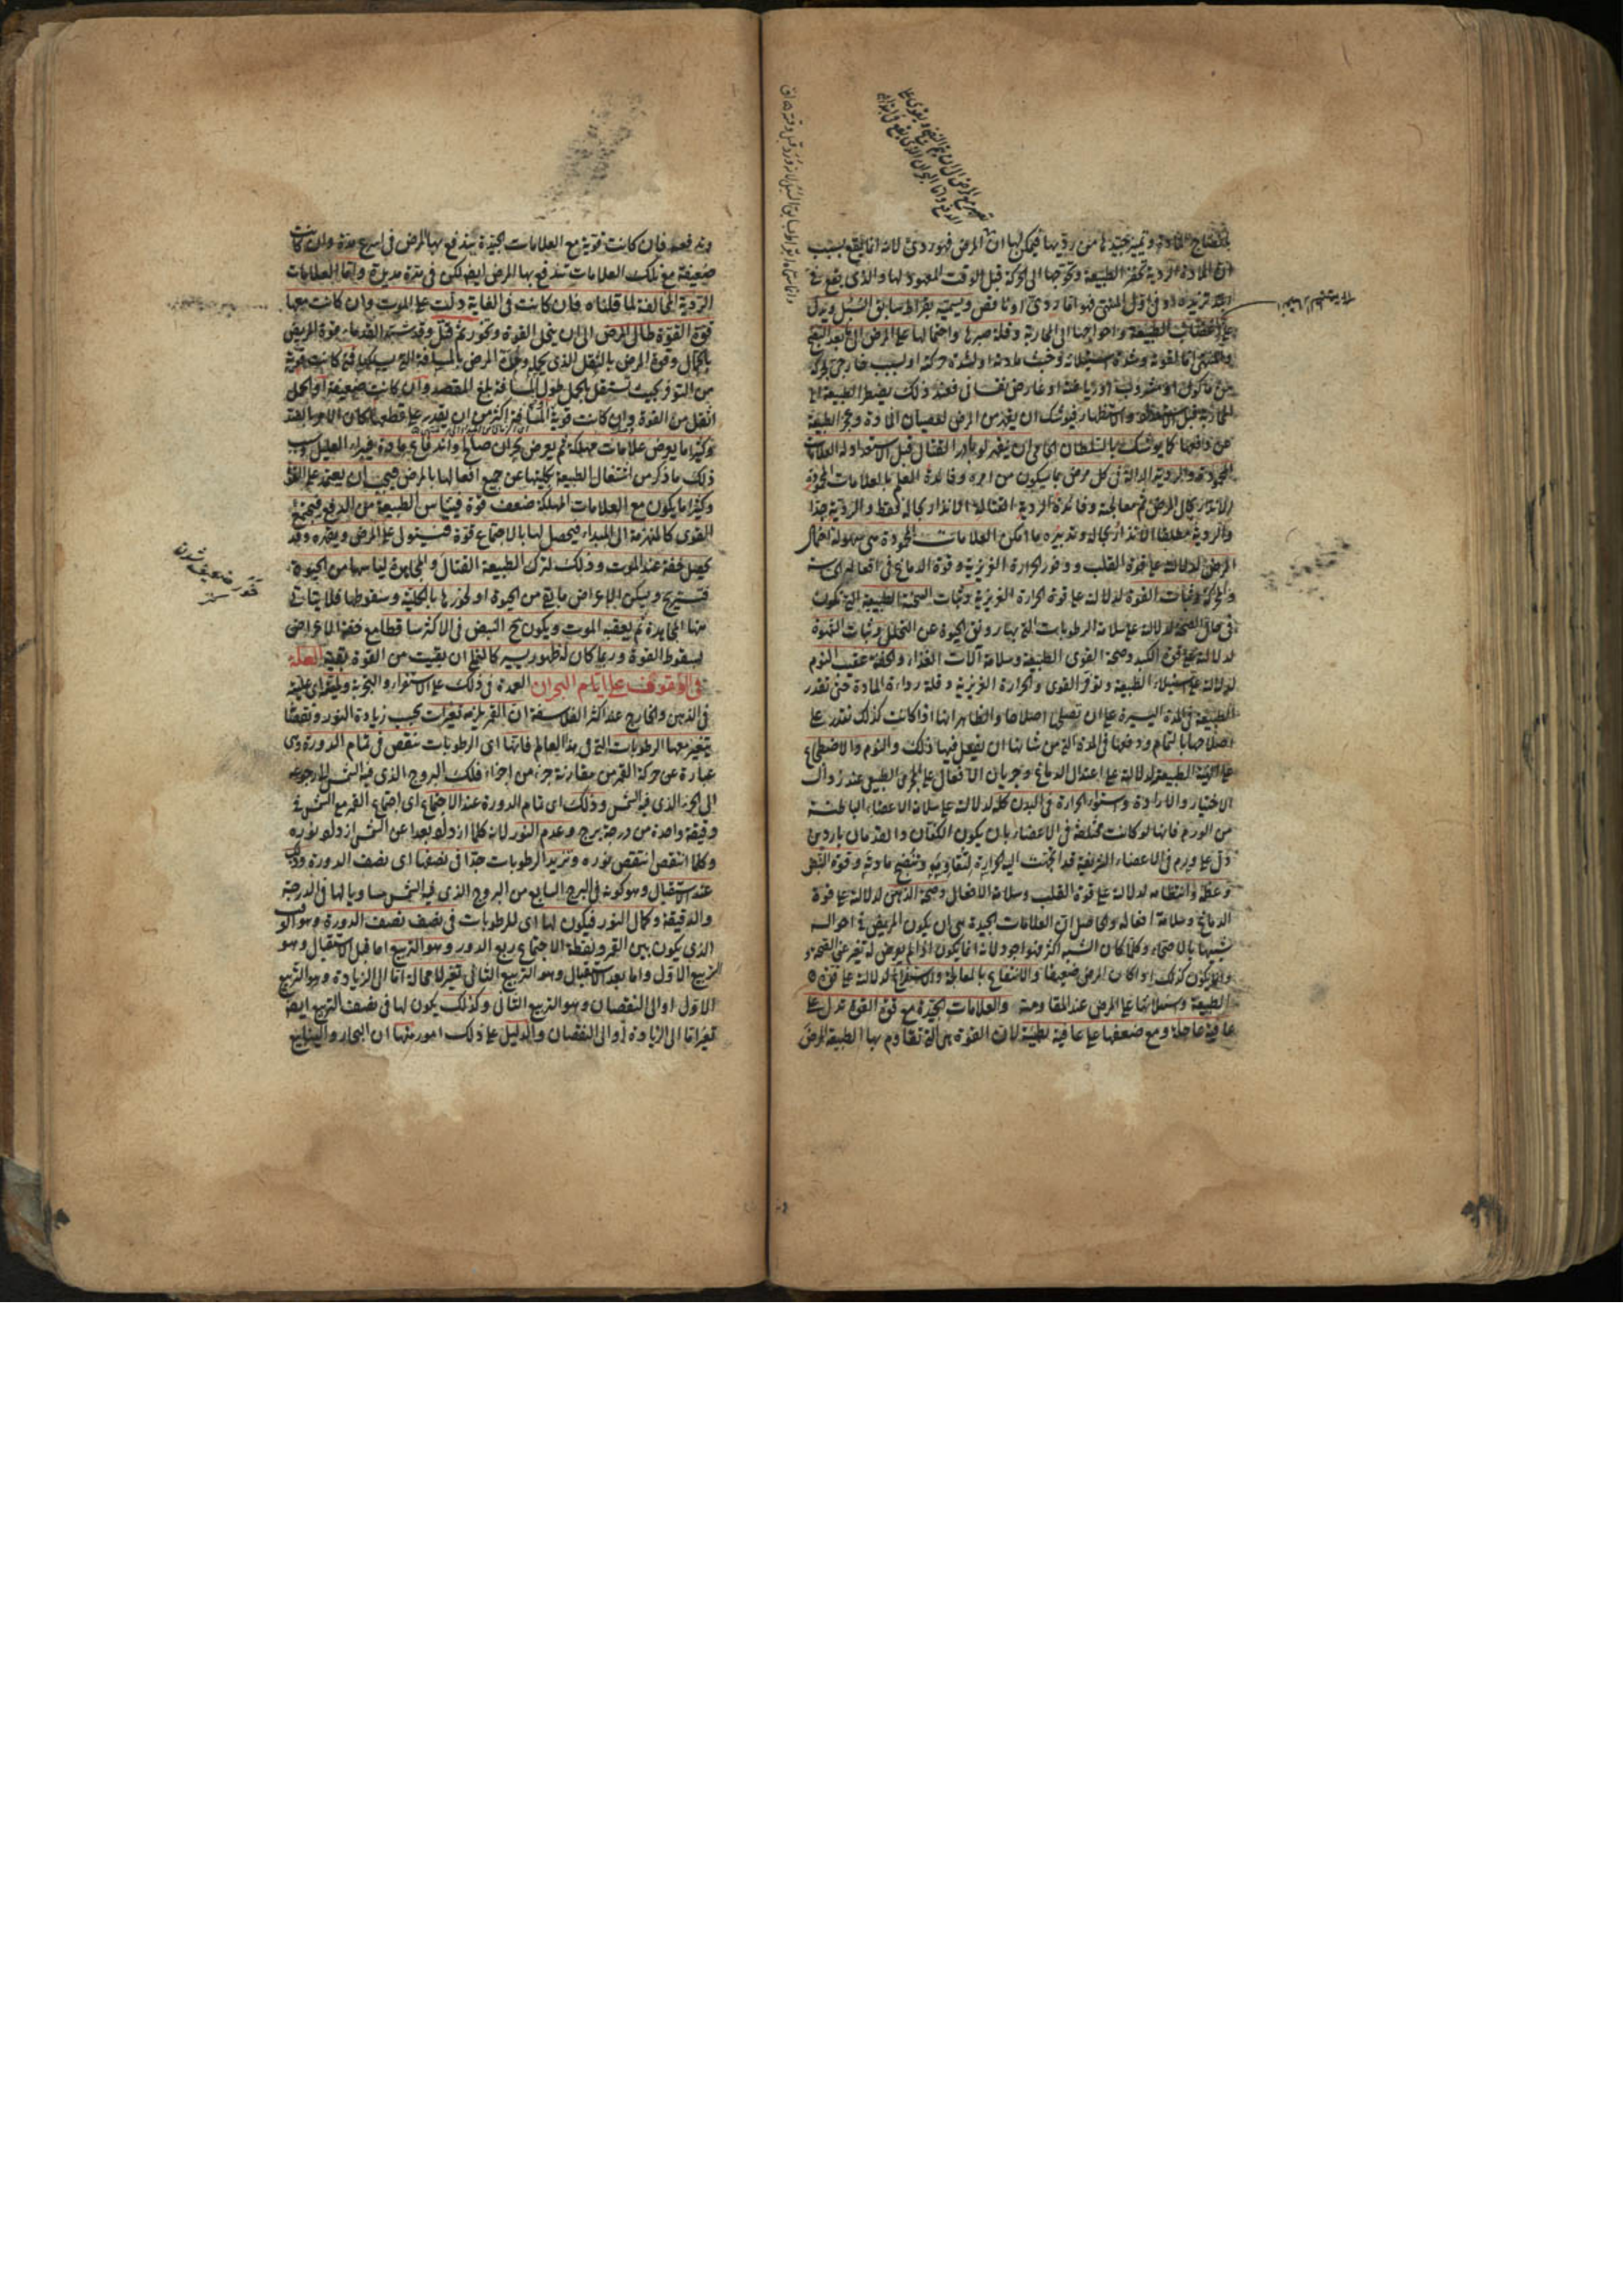 لانضاج المادة وتمييز جيدها من رديها فيمكن لها ان المرض فهو ردئ لانه انما يقع بسبب
ان المادة الردية تحفز الطبيعة وتحوجها الى الحركة قبل الوقت المعهود لها والذى يقع فى
تزيده او فى اول المنتهى فهو اما ردئ او ناقص ويسميه بقراط سابق السبل ويدل
على الطبيعة واحواجها الى المحاربة وقلة صبرها واحتمالها على المرض الى بعد النضج
والمنتهى اما لقوته وشدة وخبث مادته او لشدة حركته او لسبب خارجى
من مأكول او مشروب او رياضة او عارض نفسانى فعند ذلك يضطر الطبيعة الى
المحاربة قبل والاستظهار فيوشك ان يقهر من المرض لعصيان المادة وعجز الطبيعة
عن دفعها كما يوشك بالسلطان الحامى ان يقهر لو بادر القتال قبل الاستعداد له العلامات
المحمودة والردية الدالة فى كل مرض بما يكون من امره وفائدة العلم بالعلامات المحمودة
الانذار بحال المرض ثم معالجته وفائدة الردية القتالة الانذار بحاله فقط والردية جدا
والردية مطلقا الانذار بحاله وتدبيره ما امكن العلامات المحمودة هى سهولة احتمال
المرض لدلالته على قوة القلب ووفور الحرارة الغريزية وقوة الدماغ فى افعاله
والحركة وثبات القوة لدلالته على قوة الحرارة الغريزية وثبات السحنة الطبيعية التى تكون
فى حال الصحة لدلالته على سلامة الرطوبات التى بها رونق الحيوة عن التحلل وثبات الشهوة
لدلالته على قوة الكبد وصحة القوى الطبيعية وسلامة آلات الغذاء والخفة عقب النوم
لدلالته على استيلاء الطبيعة وتوفر القوى والحرارة الغريزية وقلة رداءة المادة حتى تقدر
الطبيعة فى المدة اليسيرة على ان تصلح اصلاحا والظاهر انها اذا كانت كذلك تقدر على
اصلاحها بالتمام ودفعها فى المدة التى من شانها ان يفعل فيها ذلك والنوم والاضطجاع
على الهيئة الطبيعية لدلالته على اعتدال الدماغ وجريان الافعال على المجرى الطبيعى عند زوال
الاختيار والارادة واستواء الحرارة فى البدن كله لدلالته على سلامة الاعضاء الباطنة
من الورم فانها لو كانت مختلفة فى الاعضاء بان يكون الكفان والقدمان باردين
دل على ورم فى الاعضاء الشريفة قد انجذبت اليه الحرارة لتقاومه وتنضج مادته وقوة النبض
وعظمه وانتظامه لدلالته على قوة القلب وسلامة الافعال وصحة الذهن لدلالته على قوة
الدماغ وسلامة افعاله والحاصل ان العلامات الجيدة هى ان يكون المريض فى احواله
شبيها بالاصحاء وكلما كان الشبه اكثر فهو اجود لانه انما يكون اذا لم يعرض له تغير عن الصحة
وانما يكون كذلك اذا كان المرض ضعيفا والانتفاع بالمعالجة والاستفراغ لدلالته على قوة
الطبيعة واستيلائها على المرض عند المقاومة والعلامات الجيدة مع قوة القوة تدل على
عافية عاجلة ومع ضعفها على عافية بطيئة لان القوة هى التى تقاوم بها الطبيعة المرض
وتدفعه فان كانت قوية مع العلامات الجيدة يندفع بها المرض فى اسرع مدة وان كانت
ضعيفة مع تلك العلامات تندفع بها المرض ايضا لكن فى مدة مديدة واما العلامات
الردية المخالفة لما قلناه فان كانت فى الغاية دلت على الموت وان كانت معها
قوة القوة طال المرض الى ان ينحل القوة وتخور ثم قتل وقد شبه القدماء قوة المريض
بالحمال وقوة المرض بالثقل الذى يحمله ومدة المرض بالمسافة التى يسلكها فمتى كانت قوية
من التوفر بحيث تستقل بالحمل طول المسافة بلغ المقصد وان كانت ضعيفة او الحمل
اثقل من القوة وان كانت قوية المسافة اكثر من ان يقدر على قطعها كان الامر بالضد
وكثيرا ما يعرض علامات مهلكة ثم يعرض بحران صالح واندفاع مادة فيبرأ العليل وسبب
ذلك ما ذكر من اشتغال الطبيعة بكليتها عن جميع افعالها بالمرض فيجب ان يعتمد على القوة
وكثيرا ما يكون مع العلامات المهلكة ضعف قوة فييأس الطبيعة من الدفع فيجتمع
القوى كالمنهزمة الى المبدأ فيحصل لها بالاجتماع قوة فيستولى على المرض ويقهره وقد
يحصل خفة عند الموت وذلك لترك الطبيعة القتال والمجاهدة ليأسها من الحيوة
فتستريح ويسكن الاعراض ما بقى من الحيوة او لخورها بالكلية وسقوطها فلا يتأتى
منها المجاهدة ثم يعقبه الموت ويكون ح النبض فى الاكثر ساقطا مع خفة الاعراض
لسقوط القوة وربما كان له ظهور يسير كالنملى ان بقيت من القوة بقية العلة
فى الوقوف على ايام البحران العمدة فى ذلك على الاستقراء والتجربة ولميته اى علته
فى الذهن والخارج عند اكثر الفلاسفة ان القمر يلزمه تغيرات بحسب زيادة النور ونقصانه
يتغير معها الرطوبات التى فى هذا العالم فانها اى الرطوبات تنقص فى تمام الدورة وهى
عبارة عن حركة القمر من مقارنة جزء من اجزاء فلك البروج الذى فيه الشمس الى رجوعه
الى الجزء الذى فيه الشمس وذلك اى تمام الدورة عند الاجتماع اى اجتماع القمر مع الشمس فى
دقيقة واحدة من درجة برج وعدم النور لانه كلما ازداد بعدا عن الشمس ازداد نوره
وكلما انتقص انتقص نوره وتزيد الرطوبات جدا فى نصفها اى نصف الدورة وذلك
عند الاستقبال وهو كونه فى البرج السابع من البروج الذى فيه الشمس مساويا لها فى الدرجة
والدقيقة وكمال النور فيكون لها اى للرطوبات فى نصف نصف الدورة وهو
الذى يكون بين القمر ونقطة الاجتماع ربع الدور وهو التربيع اما قبل الاستقبال وهو
التربيع الاول واما بعد الاستقبال وهو التربيع الثانى تغير لا محالة اما الى الزيادة وهو التربيع
الاول او الى النقصان وهو التربيع الثانى وكذلك يكون لها فى نصف التربيع ايضا
تغير اما الى الزيادة او الى النقصان والدليل على ذلك امور منها ان البحار والينابيع